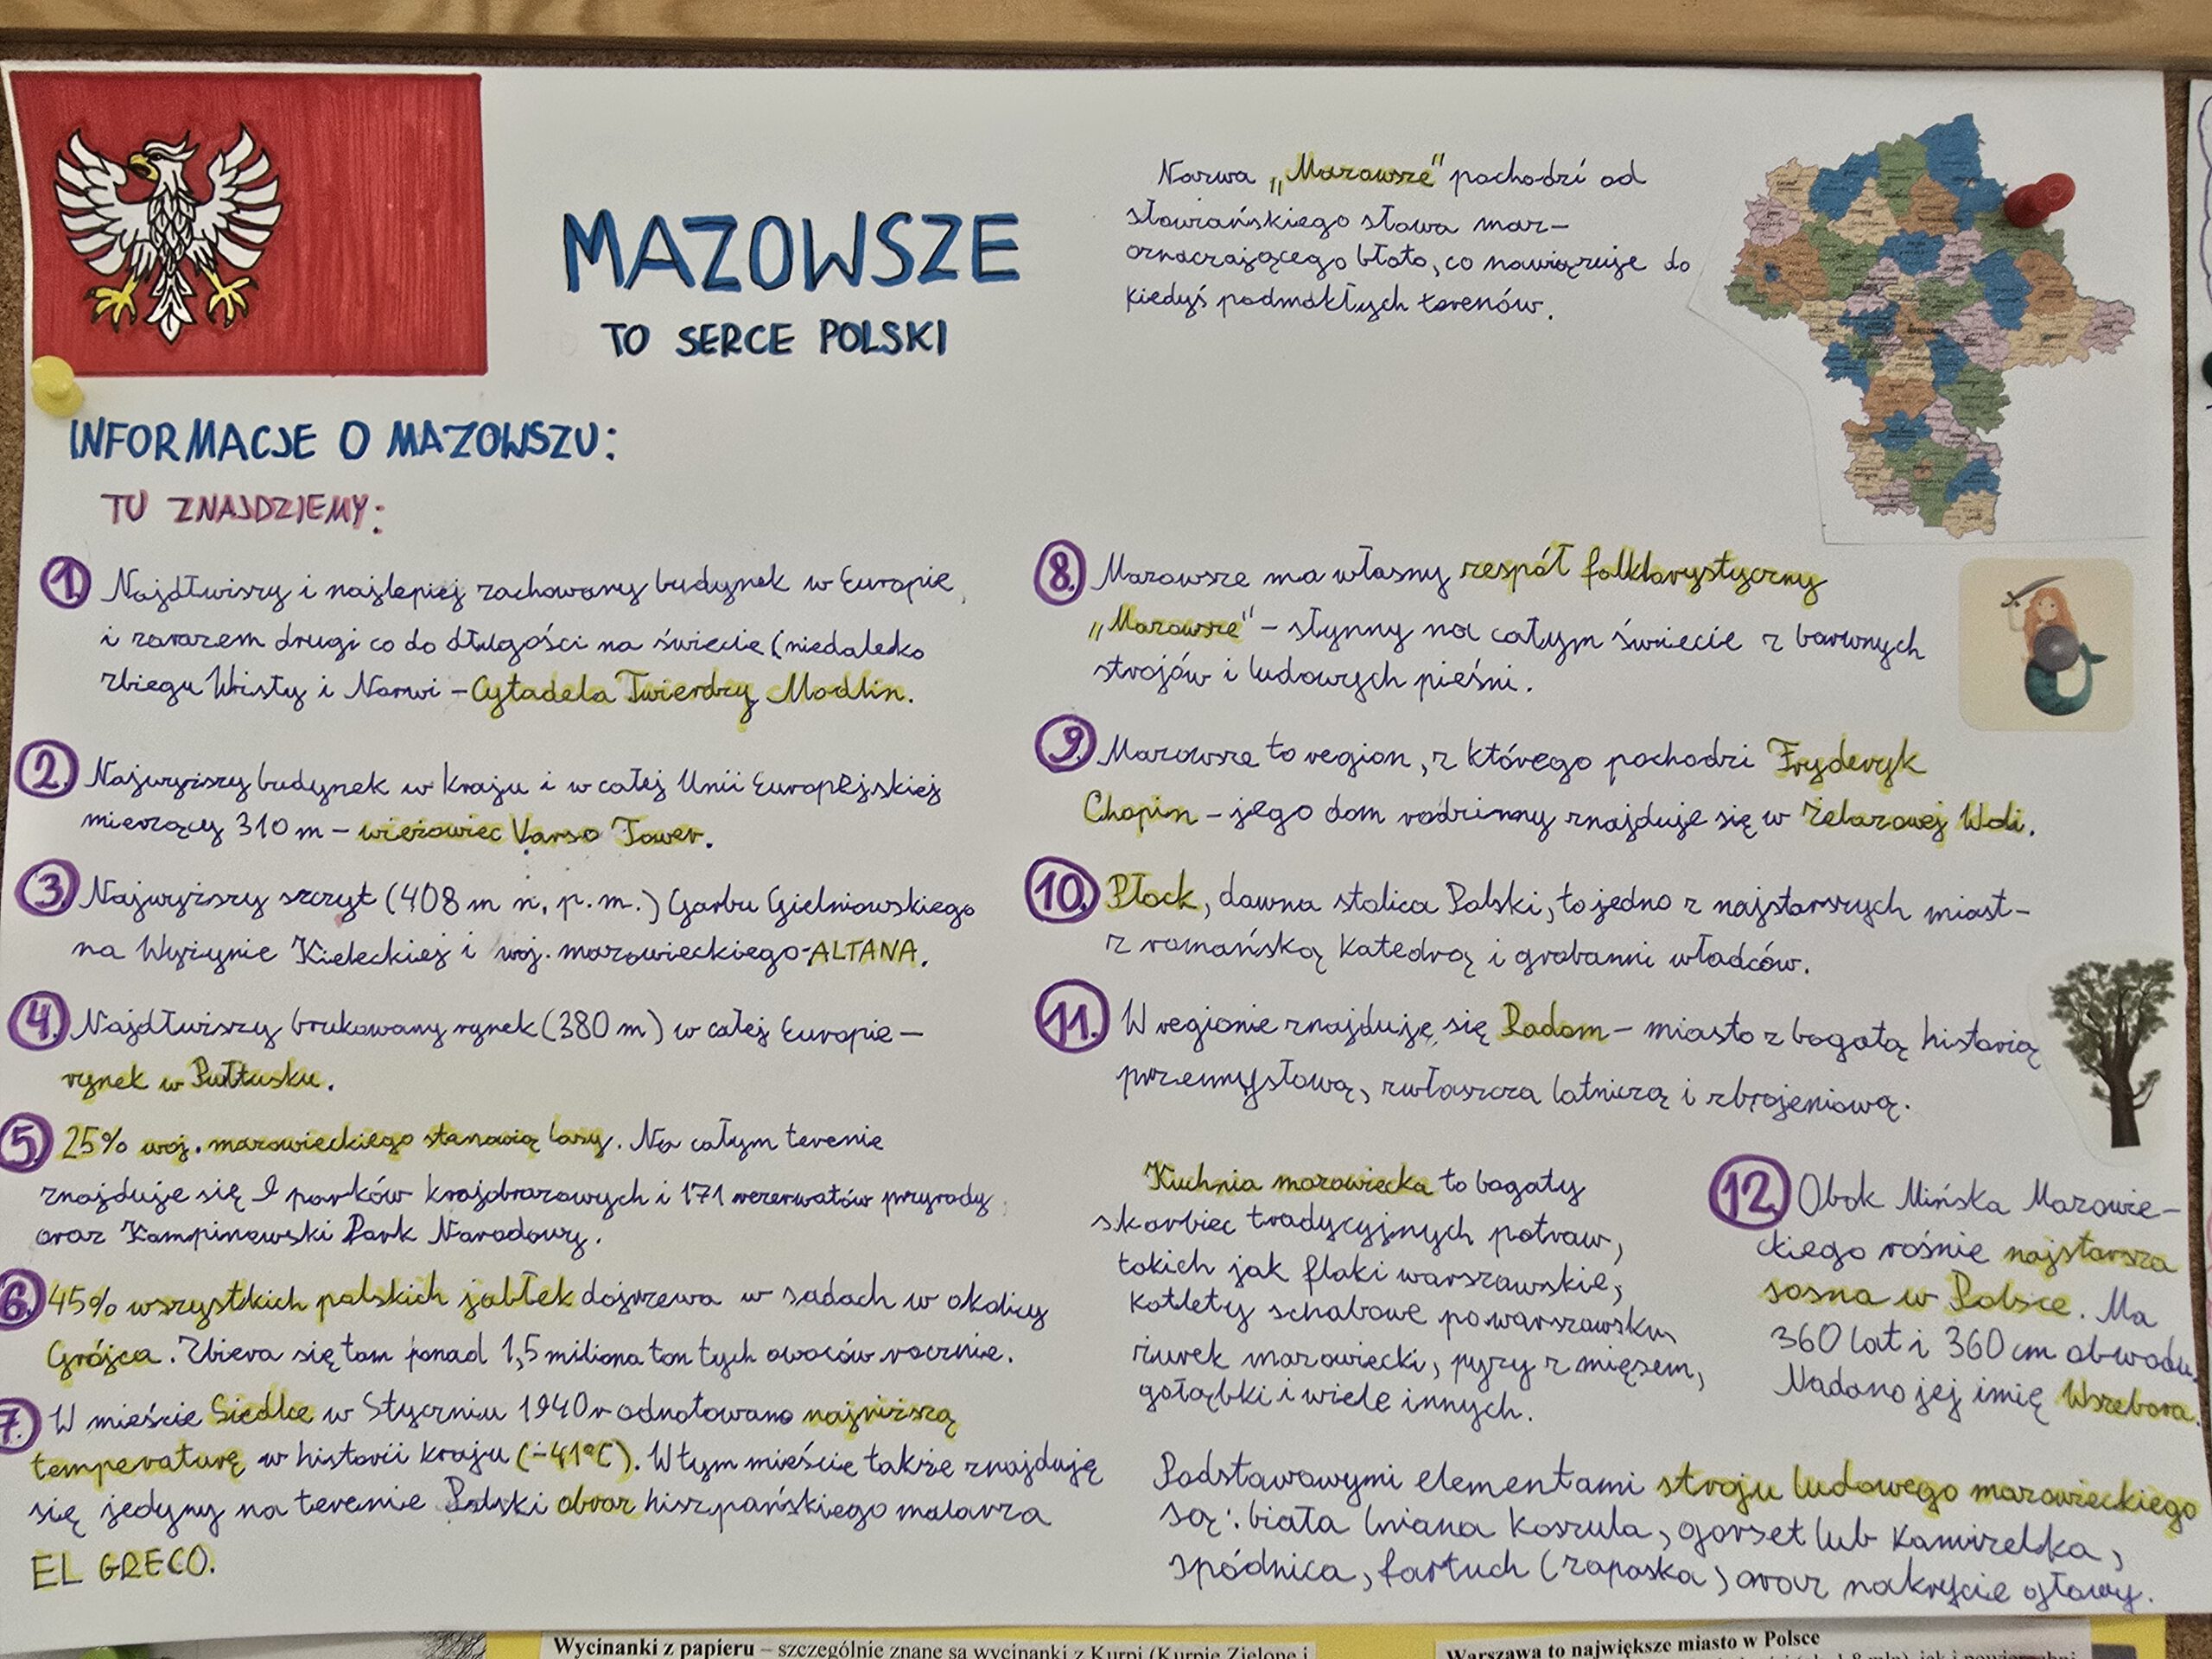 MAZOWSZE
TO SERCE POLSKI
Nazwa „Mazowsze" pochodzi od
słowiańskiego słowa maz-
oznaczającego błoto, co nawiązuje do
kiedyś podmokłych terenów.
INFORMACJE O MAZOWSZU:
TU ZNAJDZIEMY:
1. Najdłuższy i najlepiej zachowany budynek w Europie,
i zarazem drugi co do długości na świecie (niedaleko
zbiegu Wisły i Narwi – Cytadela Twierdzy Modlin.
2. Najwyższy budynek w kraju i w całej Unii Europejskiej
mierzący 310 m – wieżowiec Varso Tower.
3. Najwyższy szczyt (408 m n. p. m.) Garbu Gielniowskiego
na Wyżynie Kieleckiej i woj. mazowieckiego - ALTANA.
4. Najdłuższy brukowany rynek (380 m) w całej Europie –
rynek w Pułtusku.
5. 25% woj. mazowieckiego stanowią lasy. Na całym terenie
znajduje się 9 parków krajobrazowych i 171 rezerwatów przyrody
oraz Kampinowski Park Narodowy.
6. 45% wszystkich polskich jabłek dojrzewa w sadach w okolicy
Grójca. Zbiera się tam ponad 1,5 miliona ton tych owoców rocznie.
7. W mieście Siedlce w Styczniu 1940r odnotowano najniższą
temperaturę w historii kraju (-41°C). W tym mieście także znajduję
się jedyny na terenie Polski obraz hiszpańskiego malarza
EL GRECO.
8. Mazowsze ma własny zespół folklorystyczny
„Mazowsze" – słynny na całym świecie z barwnych
strojów i ludowych pieśni.
9. Mazowsze to region, z którego pochodzi Fryderyk
Chopin – jego dom rodzinny znajduje się w Żelazowej Woli.
10. Płock, dawna stolica Polski, to jedno z najstarszych miast –
z romańską katedrą i grobanni władców.
11. W regionie znajduję się Radom – miasto z bogatą historią
przemysłową, zwłaszcza lotniczą i zbrojeniową.
Kuchnia mazowiecka to bogaty
skarbiec tradycyjnych potraw,
takich jak flaki warszawskie,
kotlety schabowe po warszawsku,
żurek mazowiecki, pyzy z mięsem,
gołąbki i wiele innych.
12. Obok Mińska Mazowie-
ckiego rośnie najstarsza
sosna w Polsce. Ma
360 lat i 360 cm obwodu.
Nadano jej imię Wszebora.
Podstawowymi elementami stroju ludowego mazowieckiego
są: biała lniana koszula, gorset lub kamizelka,
spódnica, fartuch (zapaska) oraz nakrycie głowy.
Wycinanki z papieru – szczególnie znane są wycinanki z Kurpi (Kurpie Zielone i
Warszawa to największe miasto w Polsce